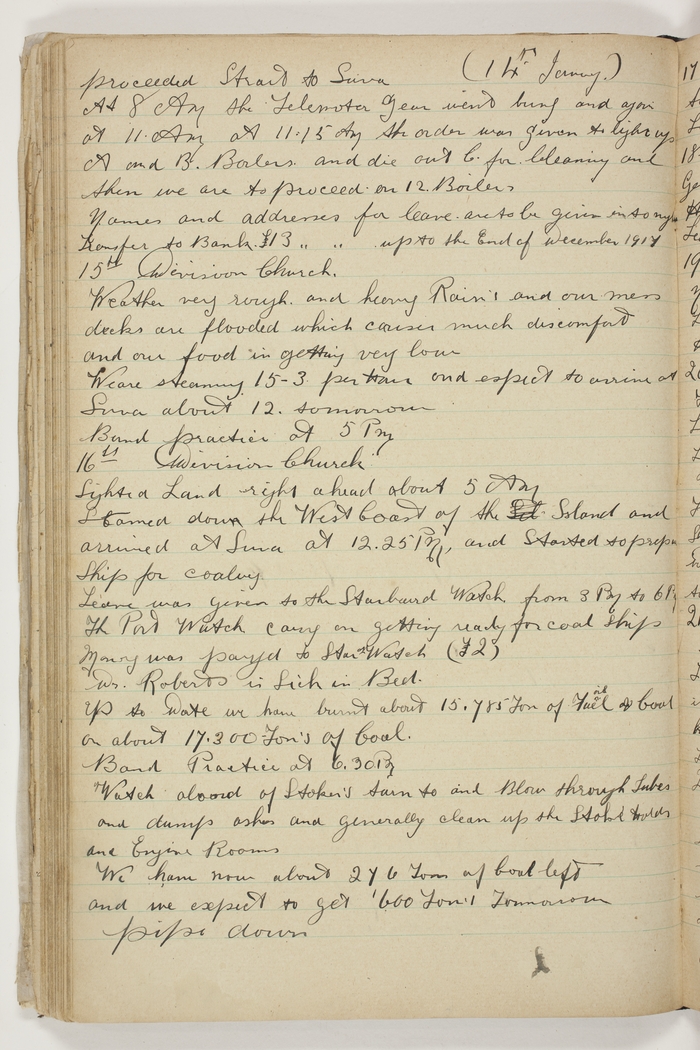 proceeded Strait to Suva (14th Janry.)
At 8 Am the Telemoter Gear went bung and again
at 11. Am at 11.15 Am the order was given to light up
A and B. Boilers and die out C for Cleaning and
then we are to proceed on 12. Boilers
Names and addresses for leave are to be given in to nigh
Transfer to Bank £13 " " up to the End of December 1917
15th Division Church.
Weather very rough and heavy Rain's and our mess
decks are flooded which causes much discomfort
and our food in getting very low
We are steaming 15-3 per hour and expect to arrive at
Suva about 12. tomorrow
Band practice at 5 Pm
16th Division Church
Sighted Land right ahead about 5 Am
Steamed down the West Coast of the Island and
arrived at Suva at 12.25 Pm, and Started to prepa
Ship for coaling
Leave was given to the Starboard Watch from 3 Pm to 6 P
Th Port Watch carry on getting ready for coal Ship
Money was payed to Star'd Watch (£2)
Wr. Roberts is Sick in Bed.
Up to Date we have burnt about 15.785 Ton of Fuel oil & Coal
or about 17.300 Ton's of Coal.
Band Practice at 6.30 Pm
Watch aboard of Stoker's turn to and Blow through Tubes
and dump ashes and generally clean up the Stoke holds
and Engine Rooms
We have now about 276 Tons of Coal left
and we expect to get 1600 Ton's Tomorrow
pipe down